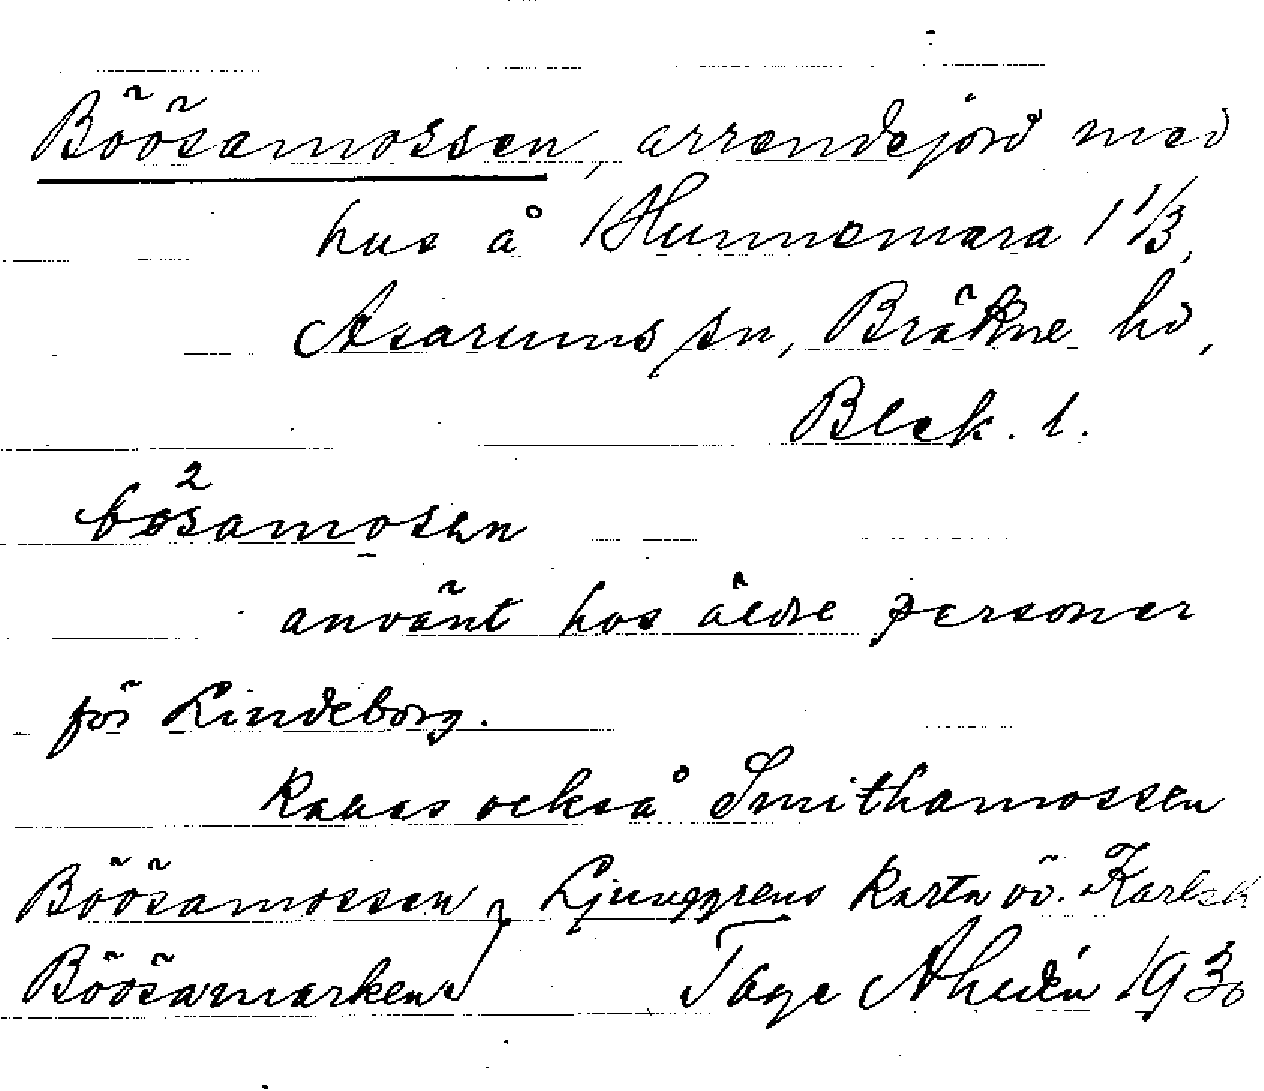 Böösamossen, arrendejord med
hus å Hunnemara 1 1/3,
Asarums sn, Bräkne hd,
Blek. l.
bösamosen
använt hos äldre personer
för Lindeborg.
Kallas också Smithamossen
Böösamossen, Ljunggrens karta öv. Karlsh
Böösamarken
Tage Ahldén 1930